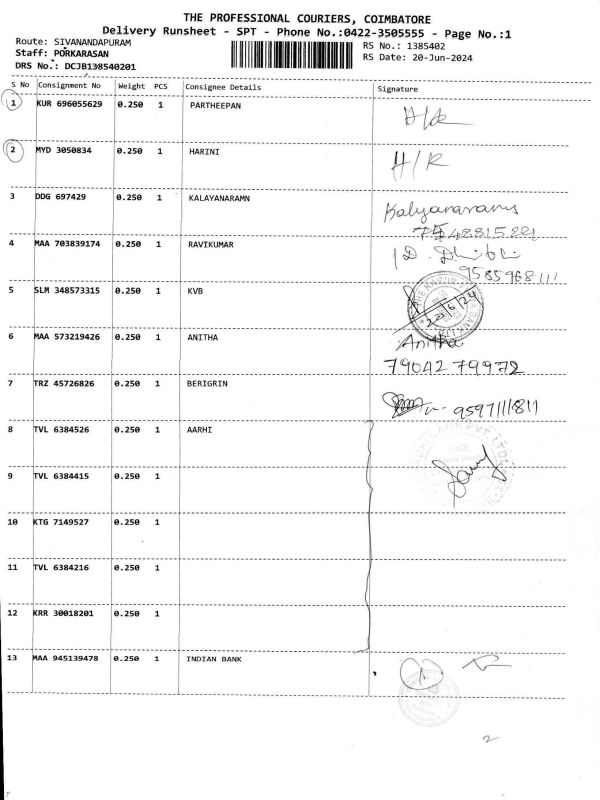 THE PROFESSIONAL COURIERS, COIMBATORE
Delivery Runsheet - SPT - Phone No.:0422-3505555 - Page No.:1
Route: SIVANANDAPURAM
Staff: PORKARASAN
DRS No.: DCJB138540201
RS No.: 1385402
RS Date: 20-Jun-2024
S No Consignment No Weight PCS Consignee Details Signature
1 KUR 696055629 0.250 1 PARTHEEPAN
2 MYD 3050834 0.250 1 HARINI H/R
3 DDG 697429 0.250 1 KALAYANARAMN
4 MAA 703839174 0.250 1 RAVIKUMAR
9585968111
5 SLM 348573315 0.250 1 KVB
20/6/24
6 MAA 573219426 0.250 1 ANITHA Anitha
79042 79972
7 TRZ 45726826 0.250 1 BERIGRIN
9597111811
8 TVL 6384526 0.250 1 AARHI
9 TVL 6384415 0.250 1
10 KTG 7149527 0.250 1
11 TVL 6384216 0.250 1
12 KRR 30018201 0.250 1
13 MAA 945139478 0.250 1 INDIAN BANK
2